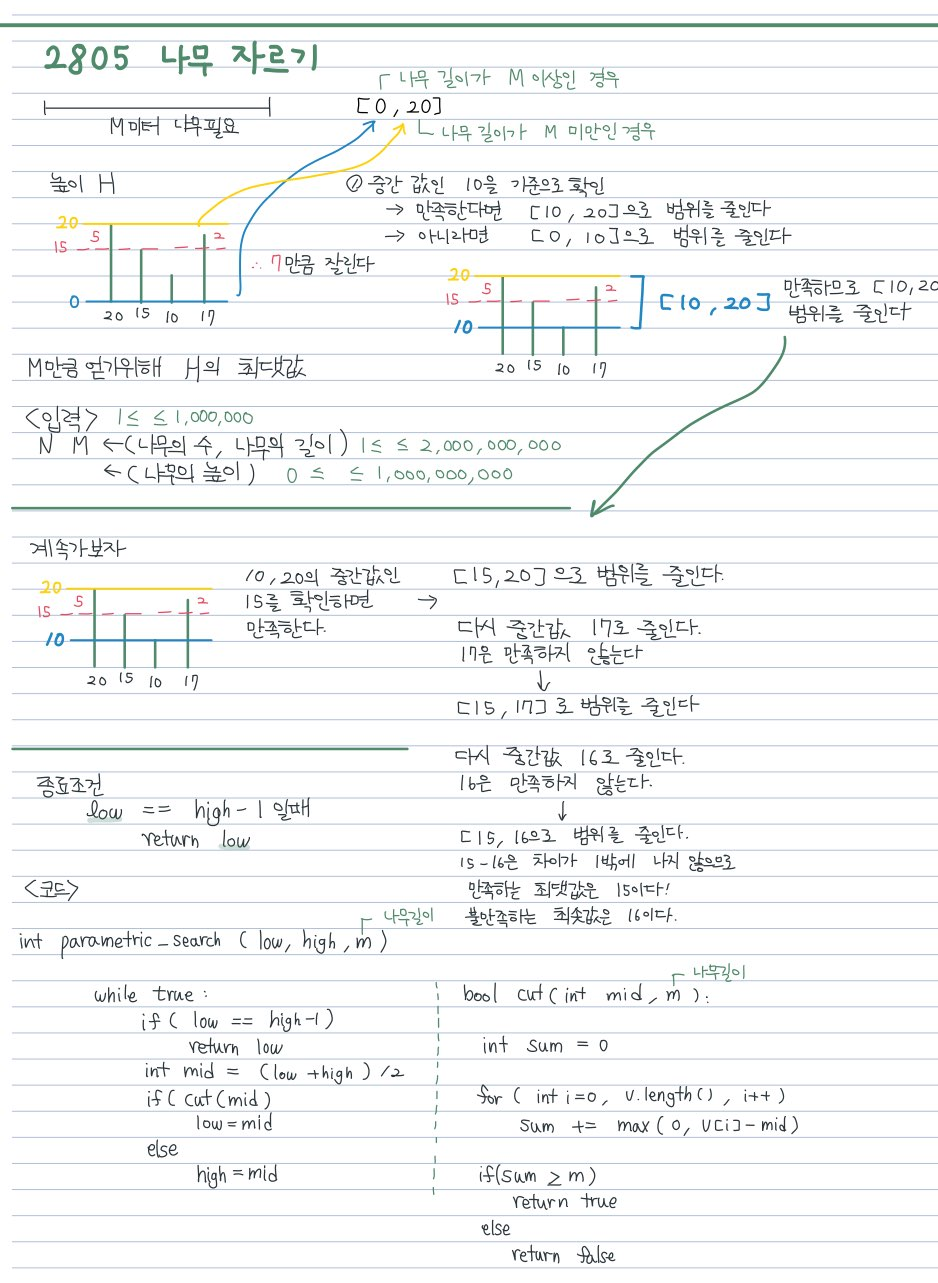 2805 나무 자르기
나무 길이가 M 이상인 경우
[0, 20]
M미터 나무필요
나무 길이가 M 미만인 경우
높이 H
① 중간 값인 10을 기준으로 확인
→ 만족한다면 [10, 20]으로 범위를 줄인다
→ 아니라면 [0, 10]으로 범위를 줄인다
20
5
2
15
0
20 15 10 17
∴ 7만큼 잘린다
20
5
2
15
10
20 15 10 17
[10, 20]
만족하므로 [10,20
범위를 줄인다
M만큼 얻기위해 H의 최댓값
<입력> 1≤ ≤1,000,000
N M ←(나무의 수, 나무의 길이) 1≤ ≤ 2,000,000,000
←(나무의 높이) 0 ≤ ≤ 1,000,000,000
계속가보자
20
5
2
15
10
20 15 10 17
10,20의 중간값인
15를 확인하면 →
만족한다.
[15,20]으로 범위를 줄인다.
다시 중간값 17로 줄인다.
17은 만족하지 않는다
↓
[15,17]로 범위를 줄인다
다시 중간값 16로 줄인다.
16은 만족하지 않는다.
↓
[15, 16으로 범위를 줄인다.
15-16은 차이가 1밖에 나지 않으므로
만족하는 최댓값은 15이다!
불만족하는 최솟값은 16이다.
종료조건
low == high-1 일때
return low
<코드>
나무길이
int parametric_search (low, high, m)
while true:
if( low == high-1)
return low
int mid = (low +high) /2
if( cut(mid)
low=mid
else
high=mid
나무길이
bool cut(int mid, m):
int sum = 0
for( int i=0, v.length(), i++)
sum += max(0, v[i]-mid)
if(sum ≥ m)
return true
else
return false